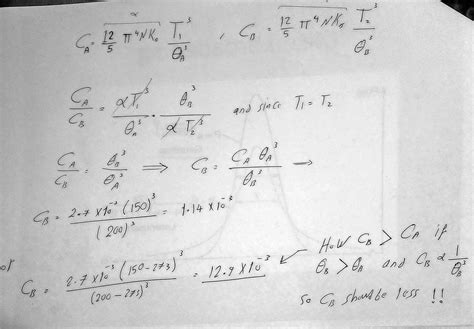 α
C_A = 12/5 π⁴ N K₀ T₁³/θ_A³ , C_B = 12/5 π⁴ N K₀ T₂³/θ_B³
C_A/C_B = αT₁³/θ_A³ · θ_B³/αT₂³ and since T₁ = T₂
C_A/C_B = θ_B³/θ_A³ ⟹ C_B = C_A θ_A³/θ_B³ →
C_B = 2.7 × 10⁻³ (150)³/(200)³ = 1.14 × 10⁻³
or C_B = 2.7 × 10⁻³ (150-273)³/(200-273)³ = 12.9 × 10⁻³
How C_B > C_A if
θ_B > θ_A and C_B α 1/θ_B³
so C_B should be less !!